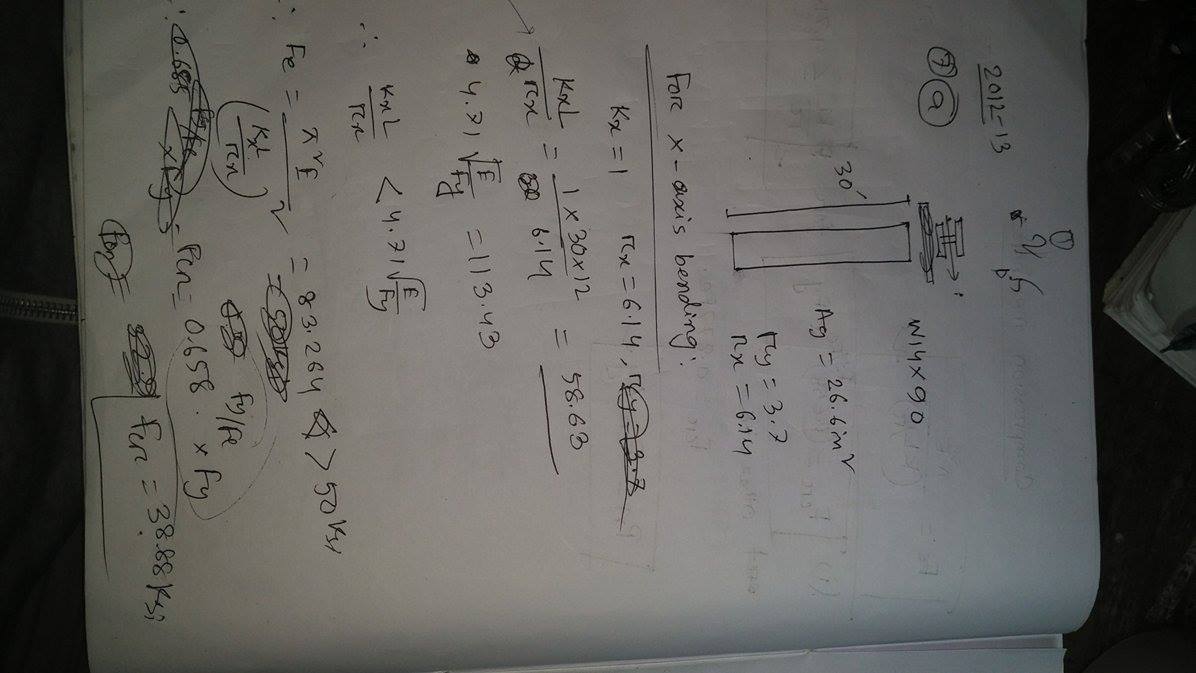 2012-13
7 a
W14×90
30'
Ag = 26.6in²
ry = 3.7
rx = 6.14
For x-axis bending:
Kx = 1 rx = 6.14,
KxL/rx = 1×30×12/6.14 = 58.63
4.71√E/Fy = 113.43
∴ KxL/rx < 4.71√E/Fy
∴ Fe = π²E/(KxL/rx)² = 83.264 > 50 Ksi
∴ Fcr = 0.658^Fy/Fe × Fy
Fcr = 38.88 Ksi